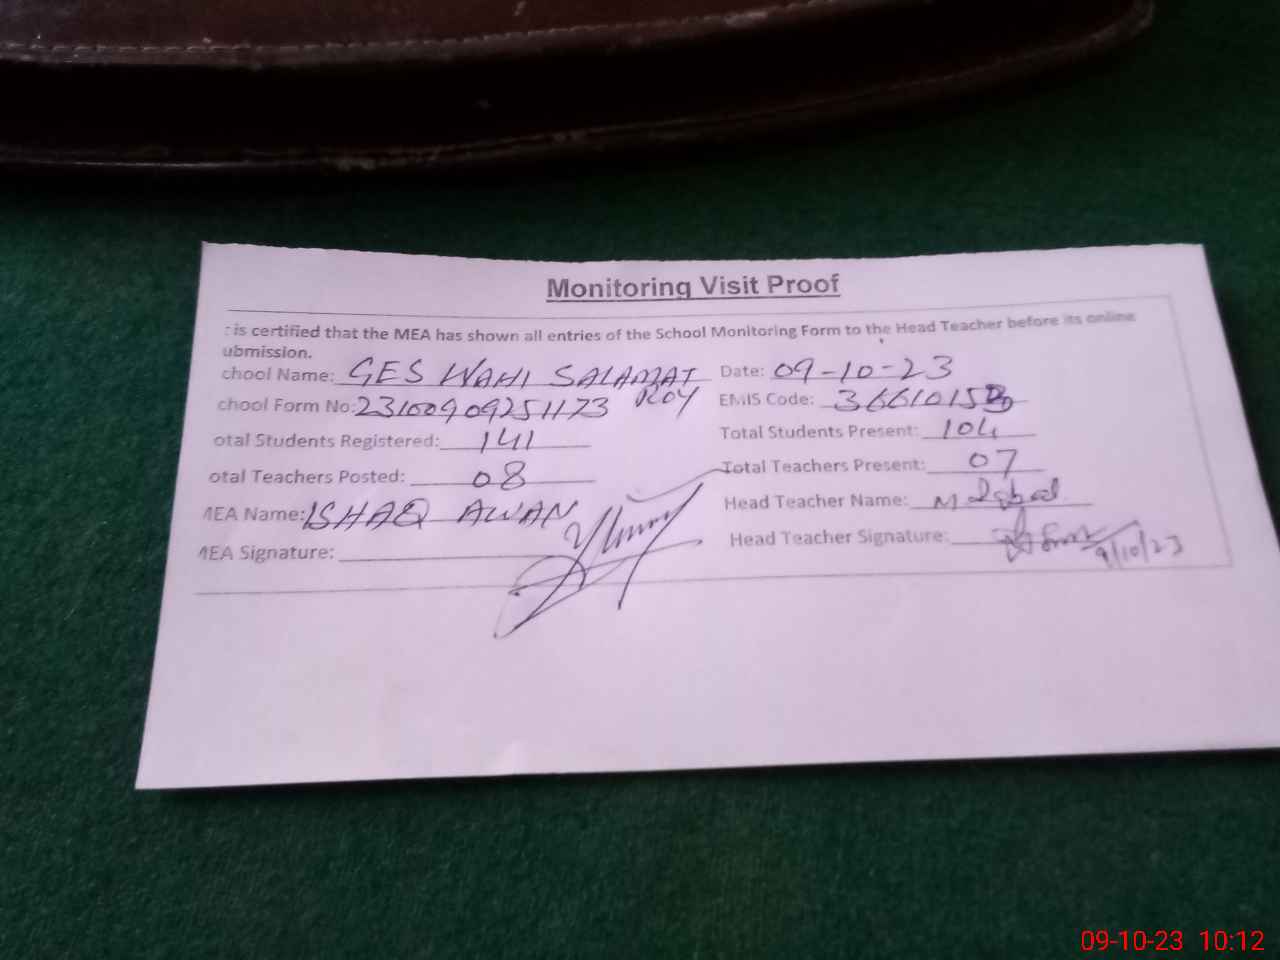 Monitoring Visit Proof
: is certified that the MEA has shown all entries of the School Monitoring Form to the Head Teacher before its online
ubmission.
chool Name: GES WAHI SALAMAT ROY Date: 09-10-23
chool Form No: 23100909251173 EMIS Code:
otal Students Registered: 141 Total Students Present: 104
otal Teachers Posted: 08 Total Teachers Present: 07
MEA Name: ISHAQ AWAN Head Teacher Name: M Iqbal
MEA Signature: Head Teacher Signature: 9/10/23
09-10-23 10:12